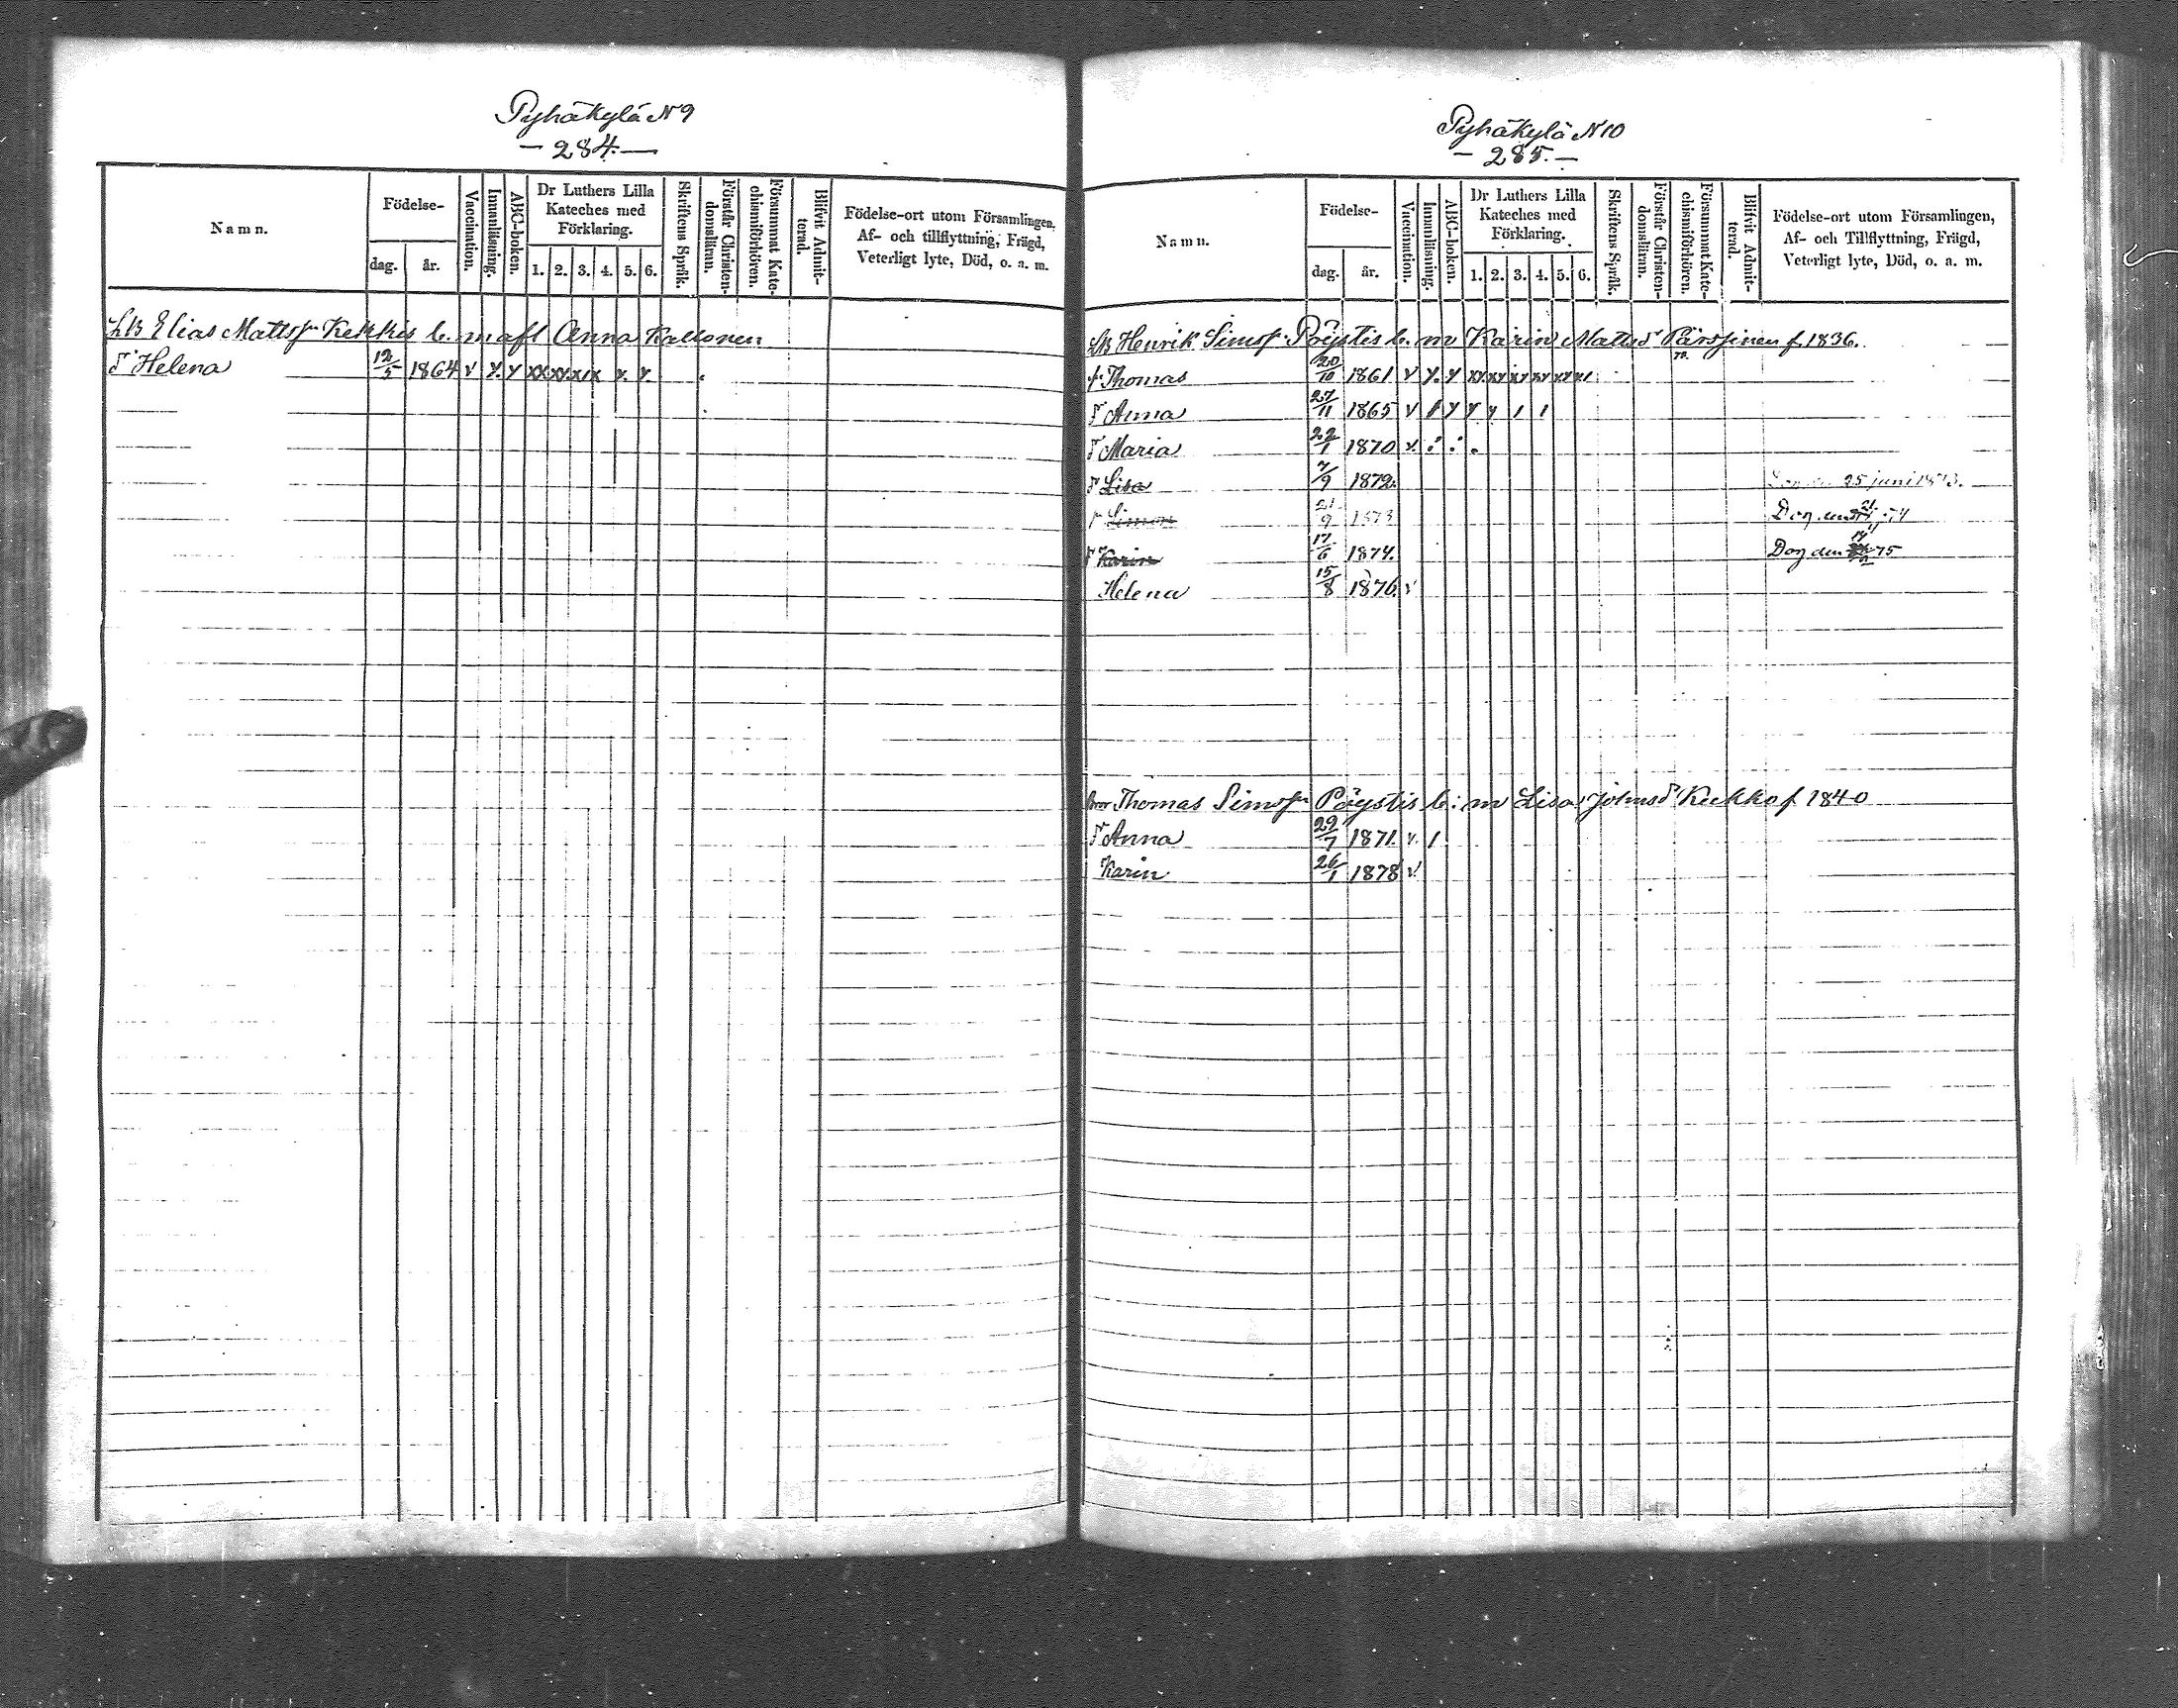 Pyhäkylä N 9
— 284. —
Namn.
Födelse-
dag.
år.
Vaccination.
Innanläsning.
ABC-boken.
Dr Luthers Lilla Kateches med Förklaring.
1. 2. 3. 4. 5. 6.
Skriftens Språk.
Förstår Christendomsläran.
Försummat Katechismiförhören.
Blifvit Admitterad.
Födelse-ort utom Församlingen,
Af- och tillflyttning, Frägd,
Veterligt lyte, Död, o. a. m.
Elias Matts Kekkis b. m afl Anna Kallonen
Helena 12/5 1864
Pyhäkylä N 10
— 285. —
Namn.
Födelse-
dag.
år.
Vaccination.
Innanläsning.
ABC-boken.
Dr Luthers Lilla Kateches med Förklaring.
1. 2. 3. 4. 5. 6.
Skriftens Språk.
Förstår Christendomsläran.
Försummat Katechismiförhören.
Blifvit Admitterad.
Födelse-ort utom Församlingen,
Af- och Tillflyttning, Frägd,
Veterligt lyte, Död, o. a. m.
Henrik Sims Pöystis b. m Karin Mattsd Pärssinen f. 1836.
Thomas 20/10 1861
Anna 27/11 1865
Maria 22/1 1870
Lisa 7/9 1872. 25 juni 1873.
Simon 21/9 1873 Dog den 74
Karin 17/6 1874. Dog den 75
Helena 15/8 1876
Bror Thomas Sims Pöystis b. m Lisa Johnsd Kukko f 1840
Anna 29/7 1871.
Karin 26/1 1878